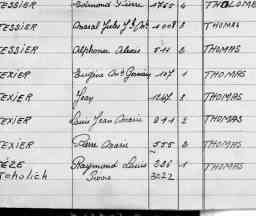 TESSIER Edmond Pierre 1765 4 THOLOME
TESSIER Marcel Jules 1008 3 THOMAS
TESSIER Alphonse Alexis 511 2 THOMAS
TEXIER Eugène Germain 107 1 THOMAS
TEXIER Jean 1247 3 THOMAS
TEXIER Louis Jean Marie 891 2 THOMAS
TEXIER Pierre Marie 555 2 THOMAS
TÈZE Raymond Louis 326 1 THOMAS
Tcholich 3022